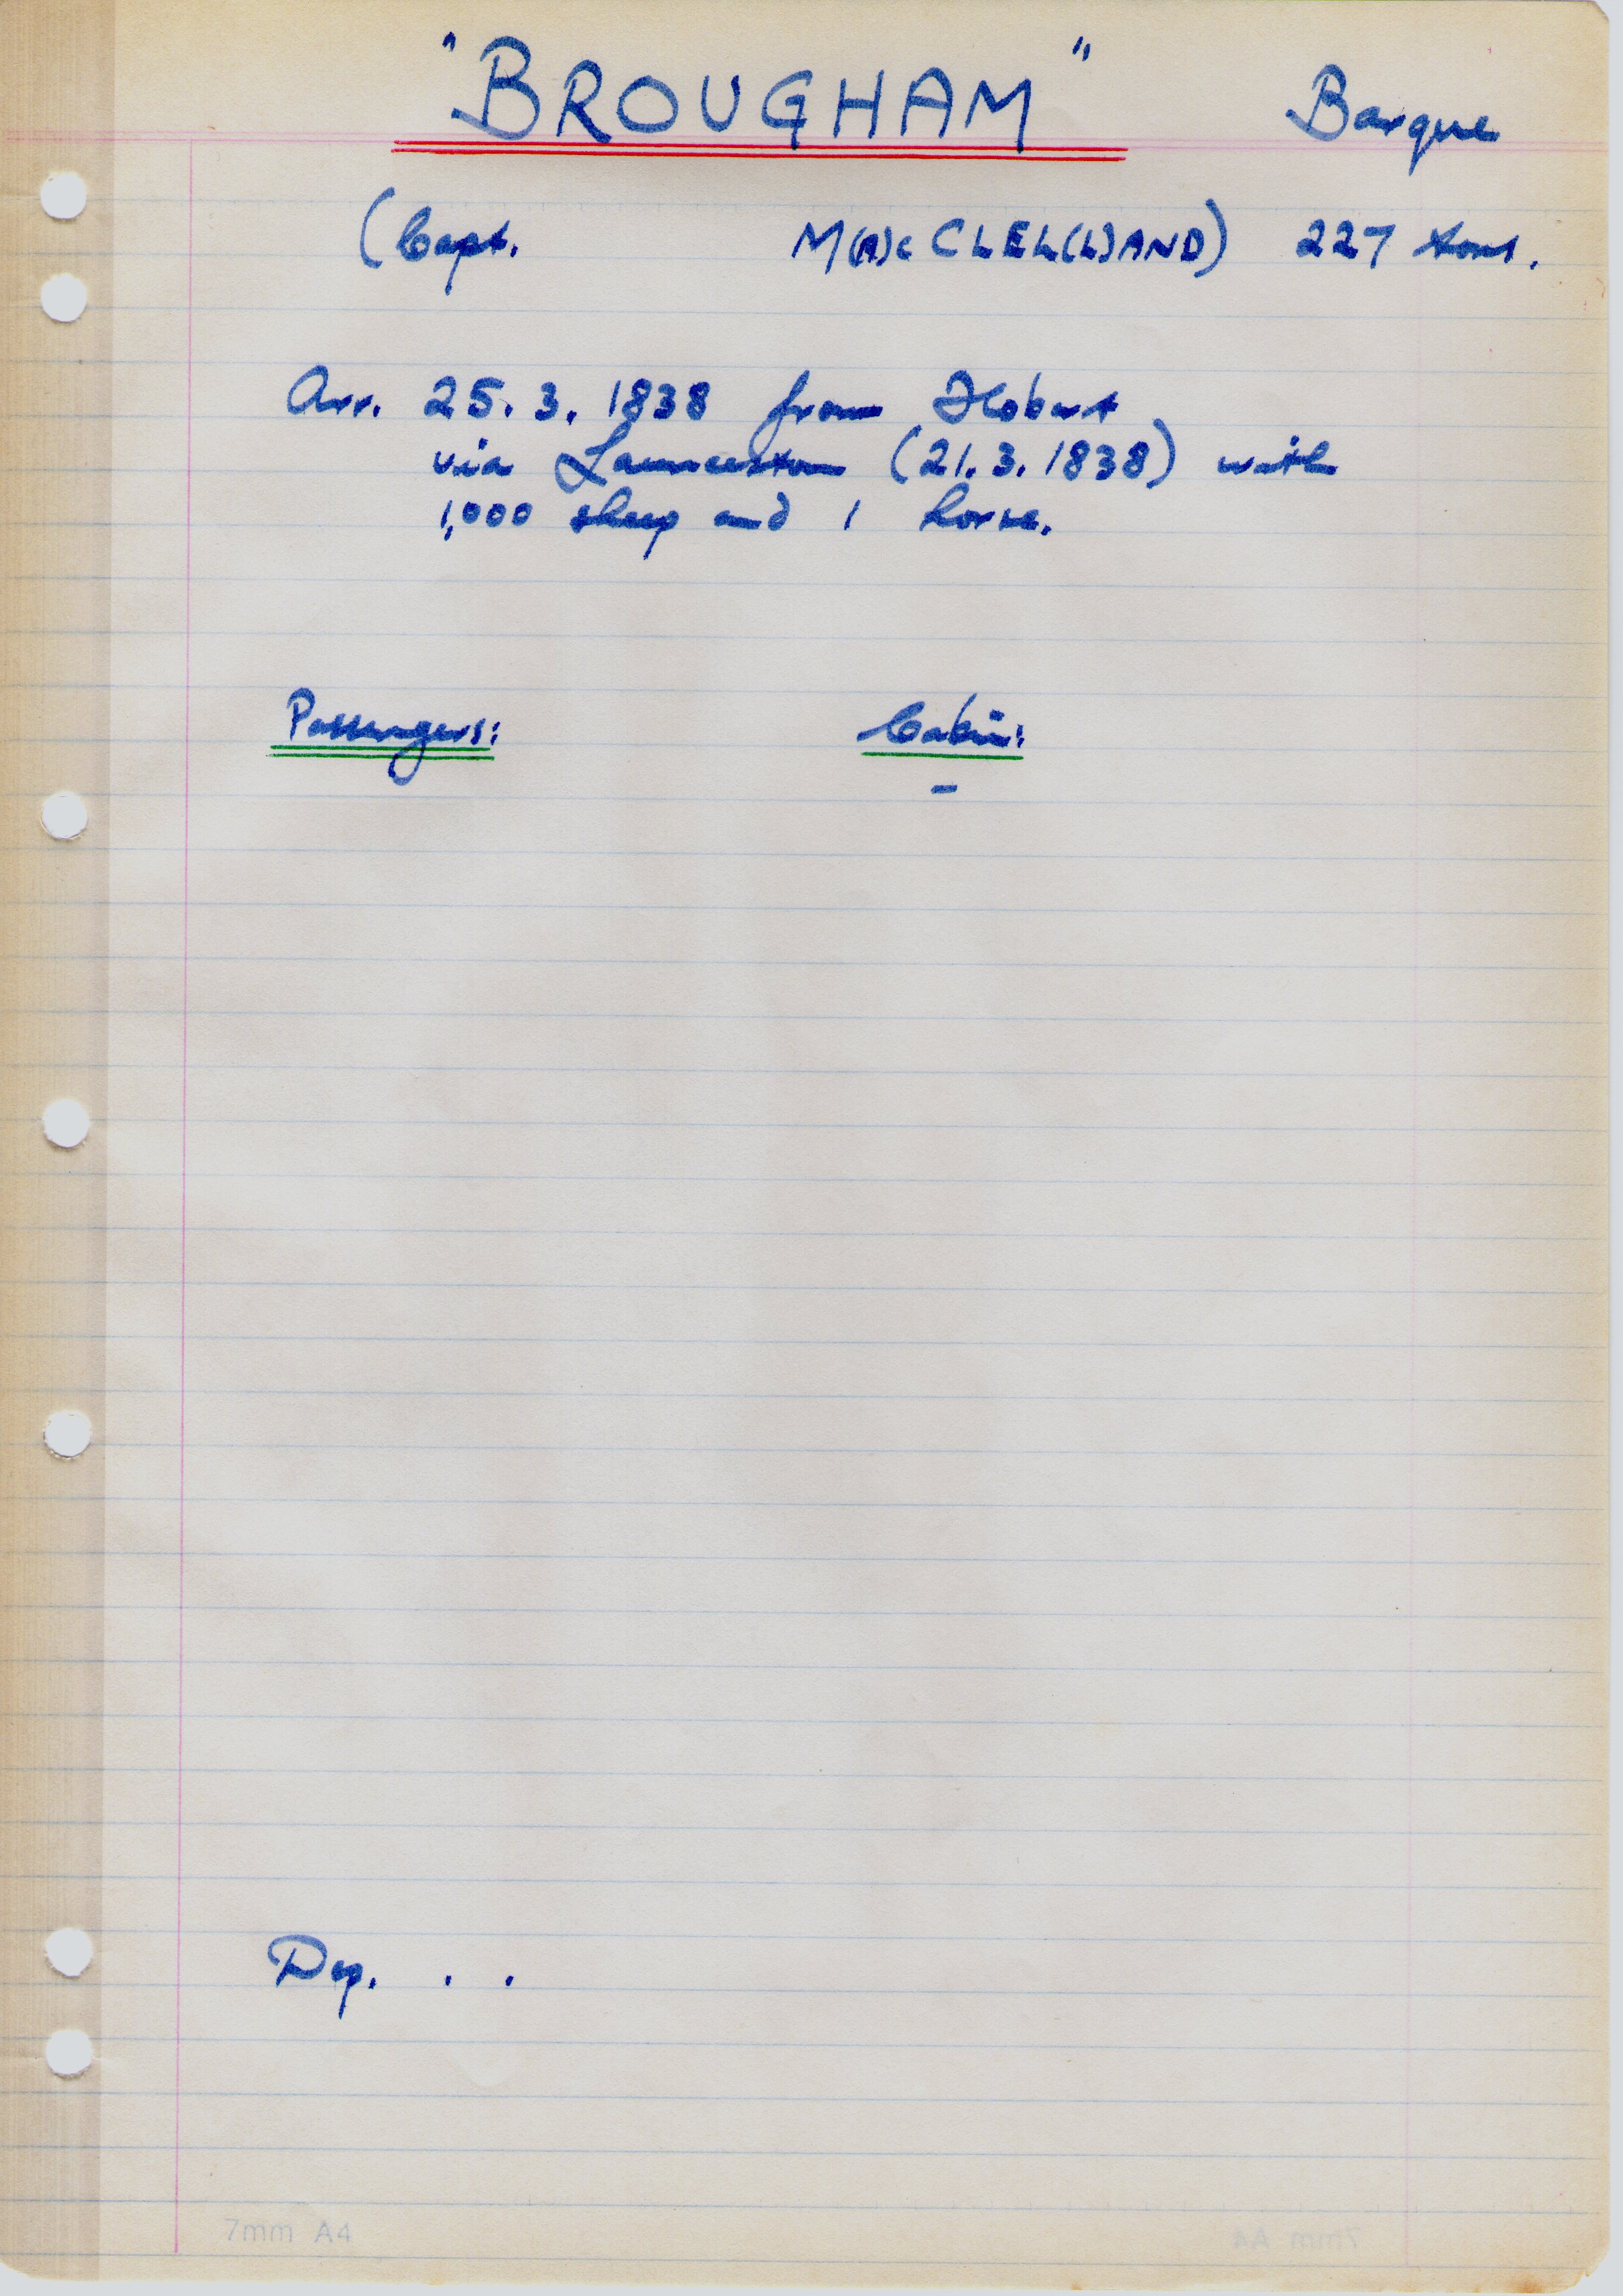 "BROUGHAM" Barque
(Capt. M(A)cCLEL(L)AND) 227 tons.
Arr. 25.3.1838 from Hobart
via Launceston (21.3.1838) with
1,000 sheep and 1 horse.
Passengers: Cabin:
-
Dep. . .
7mm A4